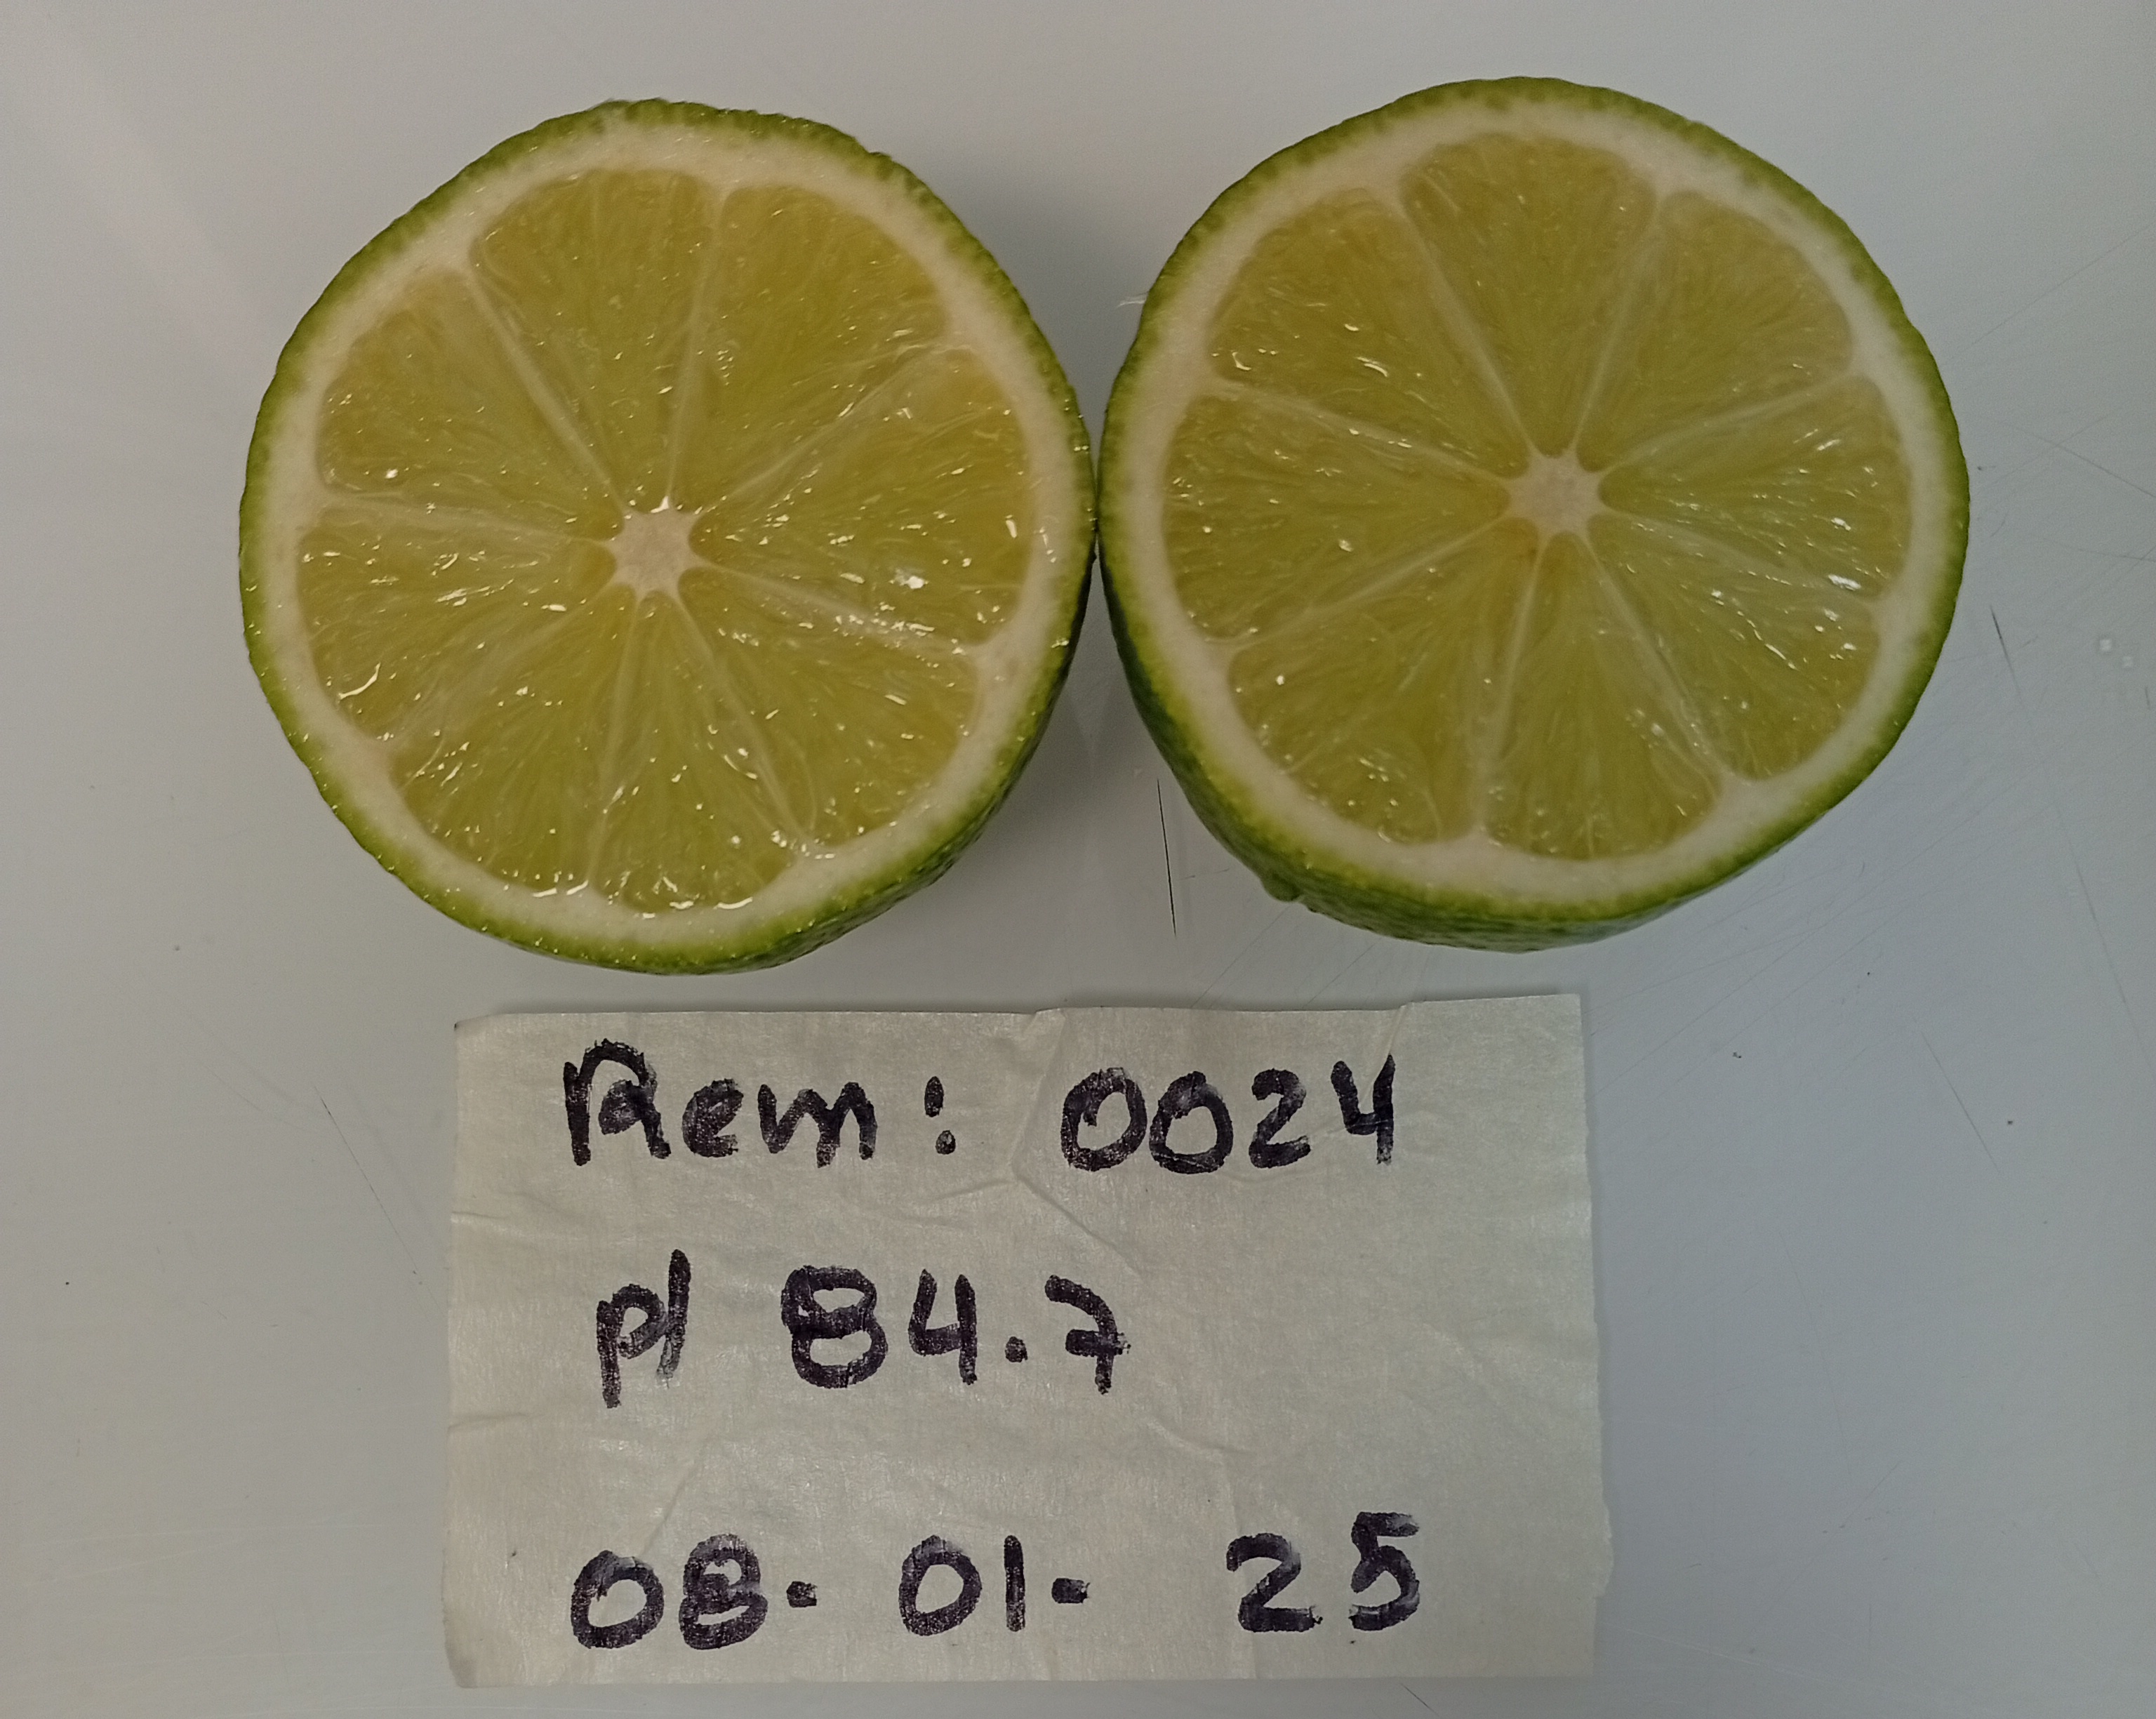 Rem: 0024
pl 84.7
08. 01. 25